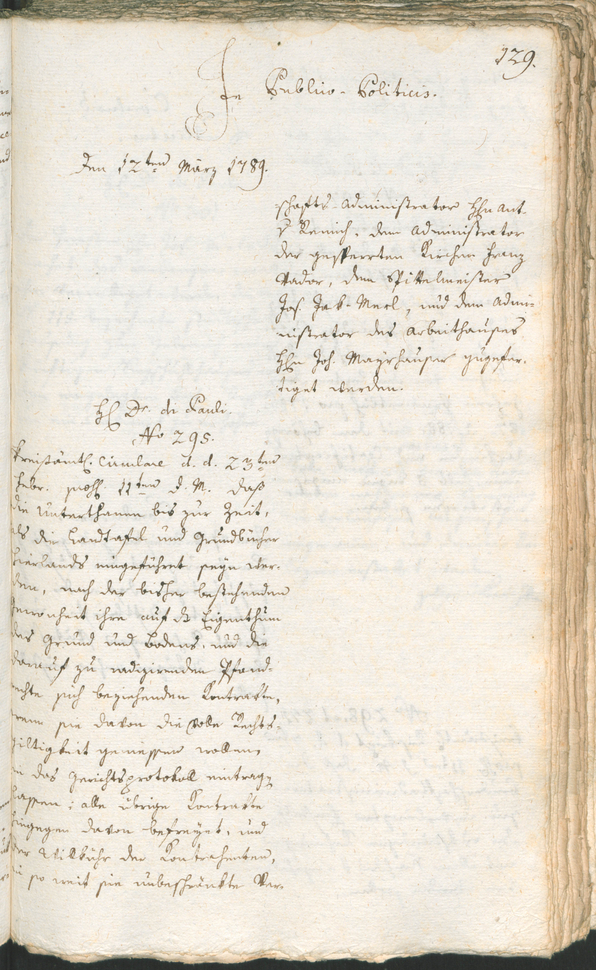 129.
In Publico-Politicis.
Den 12ten März 1789.
schafts-Administrator Hhn Ant.
v Remich, dem Administrator
der gesperrten Kirchen Franz
Vador, dem Spittelmeister
Jos. Jak. Merl, und dem Admi-
nistrator des Arbeithauses
Hhn Joh. Mayrhauser zugefer-
tiget werden.
H. Dr. di Pauli.
No 295.
Kreisämtl. Circulare d. d. 23ten
Febr. 11ten d. M. daß
die Unterthanen bis zur Zeit,
als die Landtafel und Grundbücher
hierlands eingeführet seyn wer-
den, nach der bisher bestehenden
Gewonheit ihre auf dz Eigenthum
des Grund und Bodens, und die
darauf zu radizirenden Pfand-
rechte sich beziehenden Kontrakte,
wenn sie davon die volle Rechts-
giltigkeit geniessen wollen,
in das Gerichtsprotokoll eintragen
lassen; alle übrige Kontrakte
hingegen davon befreyet, und
der Willkühr der Kontrahenten,
in so weit sie unbeschränkte Ver-